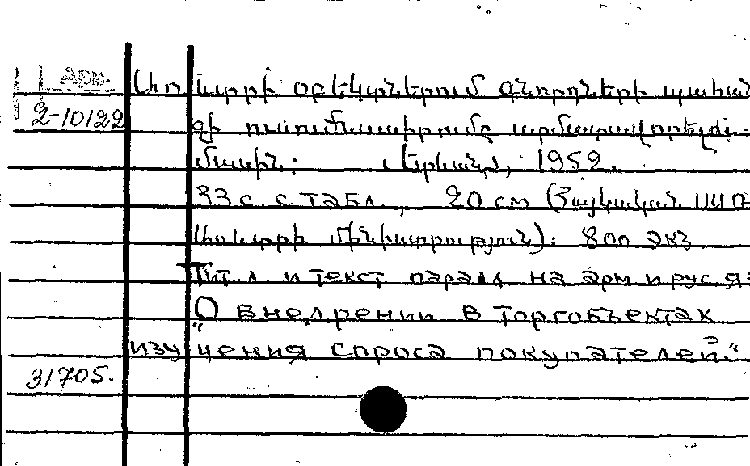 арм.
2-10122
Առևտրի օբեկտներում գնորդների պահան
ջի ուսումնասիրումը արմատավորելու
մասին: Երևան, 1959.
33 с. с табл., 20 см (Հայկական ՍՍՌ
Առևտրի մինիստրություն): 800 экз
Тит. л и текст парал на арм и рус яз
"О внедрении в торгобъектах
изучения спроса покупателей."
31705.